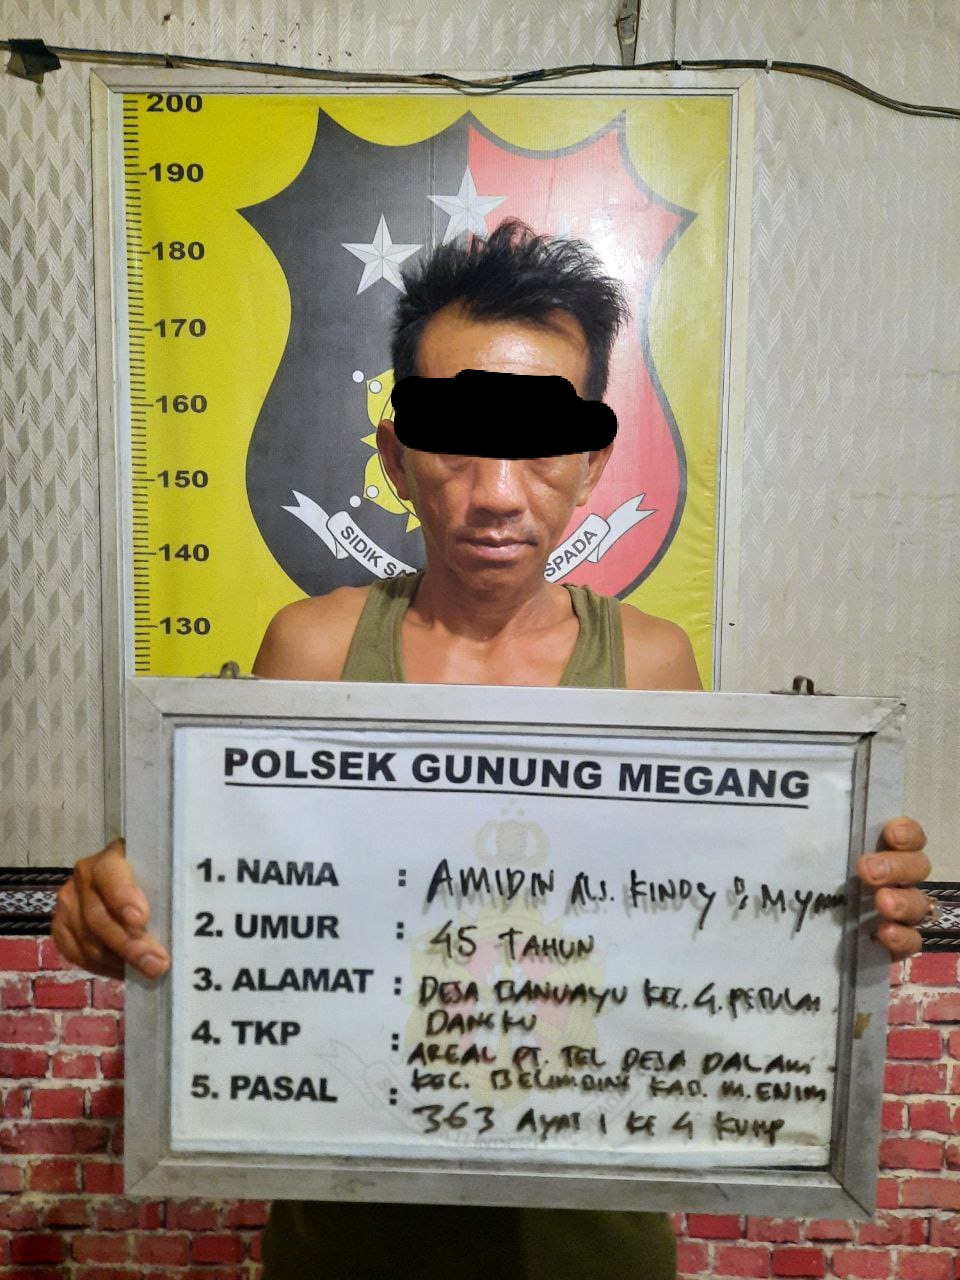 200
190
180
170
160
150
140
130
SIDIK SA
SPADA
POLSEK GUNUNG MEGANG
1. NAMA : AMIDIN ALS. KINDY
2. UMUR : 45 TAHUN
3. ALAMAT : DESA BANUAYU KEC. G.
DANGKU
4. TKP : AREAL PT. TEL DESA DALAM
KEC. BELIMBING KAB. M. ENIM
5. PASAL : 363 Ayat 1 KE 4 KUHP